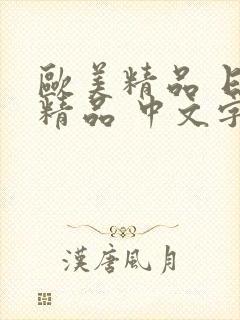 歐美精品
精品 中文字
漢唐風月